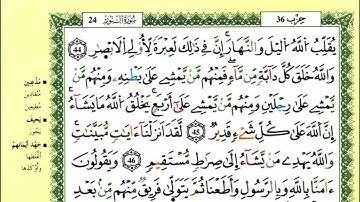 24 سُورَةُ النُّورِ حِزْب 36
يُقَلِّبُ اللَّهُ الَّيْلَ وَالنَّهَارَ إِنَّ فِي ذَٰلِكَ لَعِبْرَةً لِّأُوْلِي الْأَبْصَٰرِ 44
وَاللَّهُ خَلَقَ كُلَّ دَابَّةٍ مِّن مَّاءٍ فَمِنْهُم مَّن يَمْشِي عَلَىٰ بَطْنِهِ وَمِنْهُم مَّن
يَمْشِي عَلَىٰ رِجْلَيْنِ وَمِنْهُم مَّن يَمْشِي عَلَىٰ أَرْبَعٍ يَخْلُقُ اللَّهُ مَا يَشَاءُ
إِنَّ اللَّهَ عَلَىٰ كُلِّ شَيْءٍ قَدِيرٌ 45 لَّقَدْ أَنزَلْنَا ءَايَٰتٍ مُّبَيِّنَٰتٍ
وَاللَّهُ يَهْدِي مَن يَشَاءُ إِلَىٰ صِرَٰطٍ مُّسْتَقِيمٍ 46 وَيَقُولُونَ
ءَامَنَّا بِاللَّهِ وَبِالرَّسُولِ وَأَطَعْنَا ثُمَّ يَتَوَلَّىٰ فَرِيقٌ مِّنْهُم مِّن بَعْدِ
مُذْعِنِينَ
مُنقَادِينَ
مُطِيعِينَ
يَحِيفَ
يَجُورَ
جَهْدَ أَيْمَانِهِمْ
أَغْلَظَهَا
وَأَوْكَدَهَا